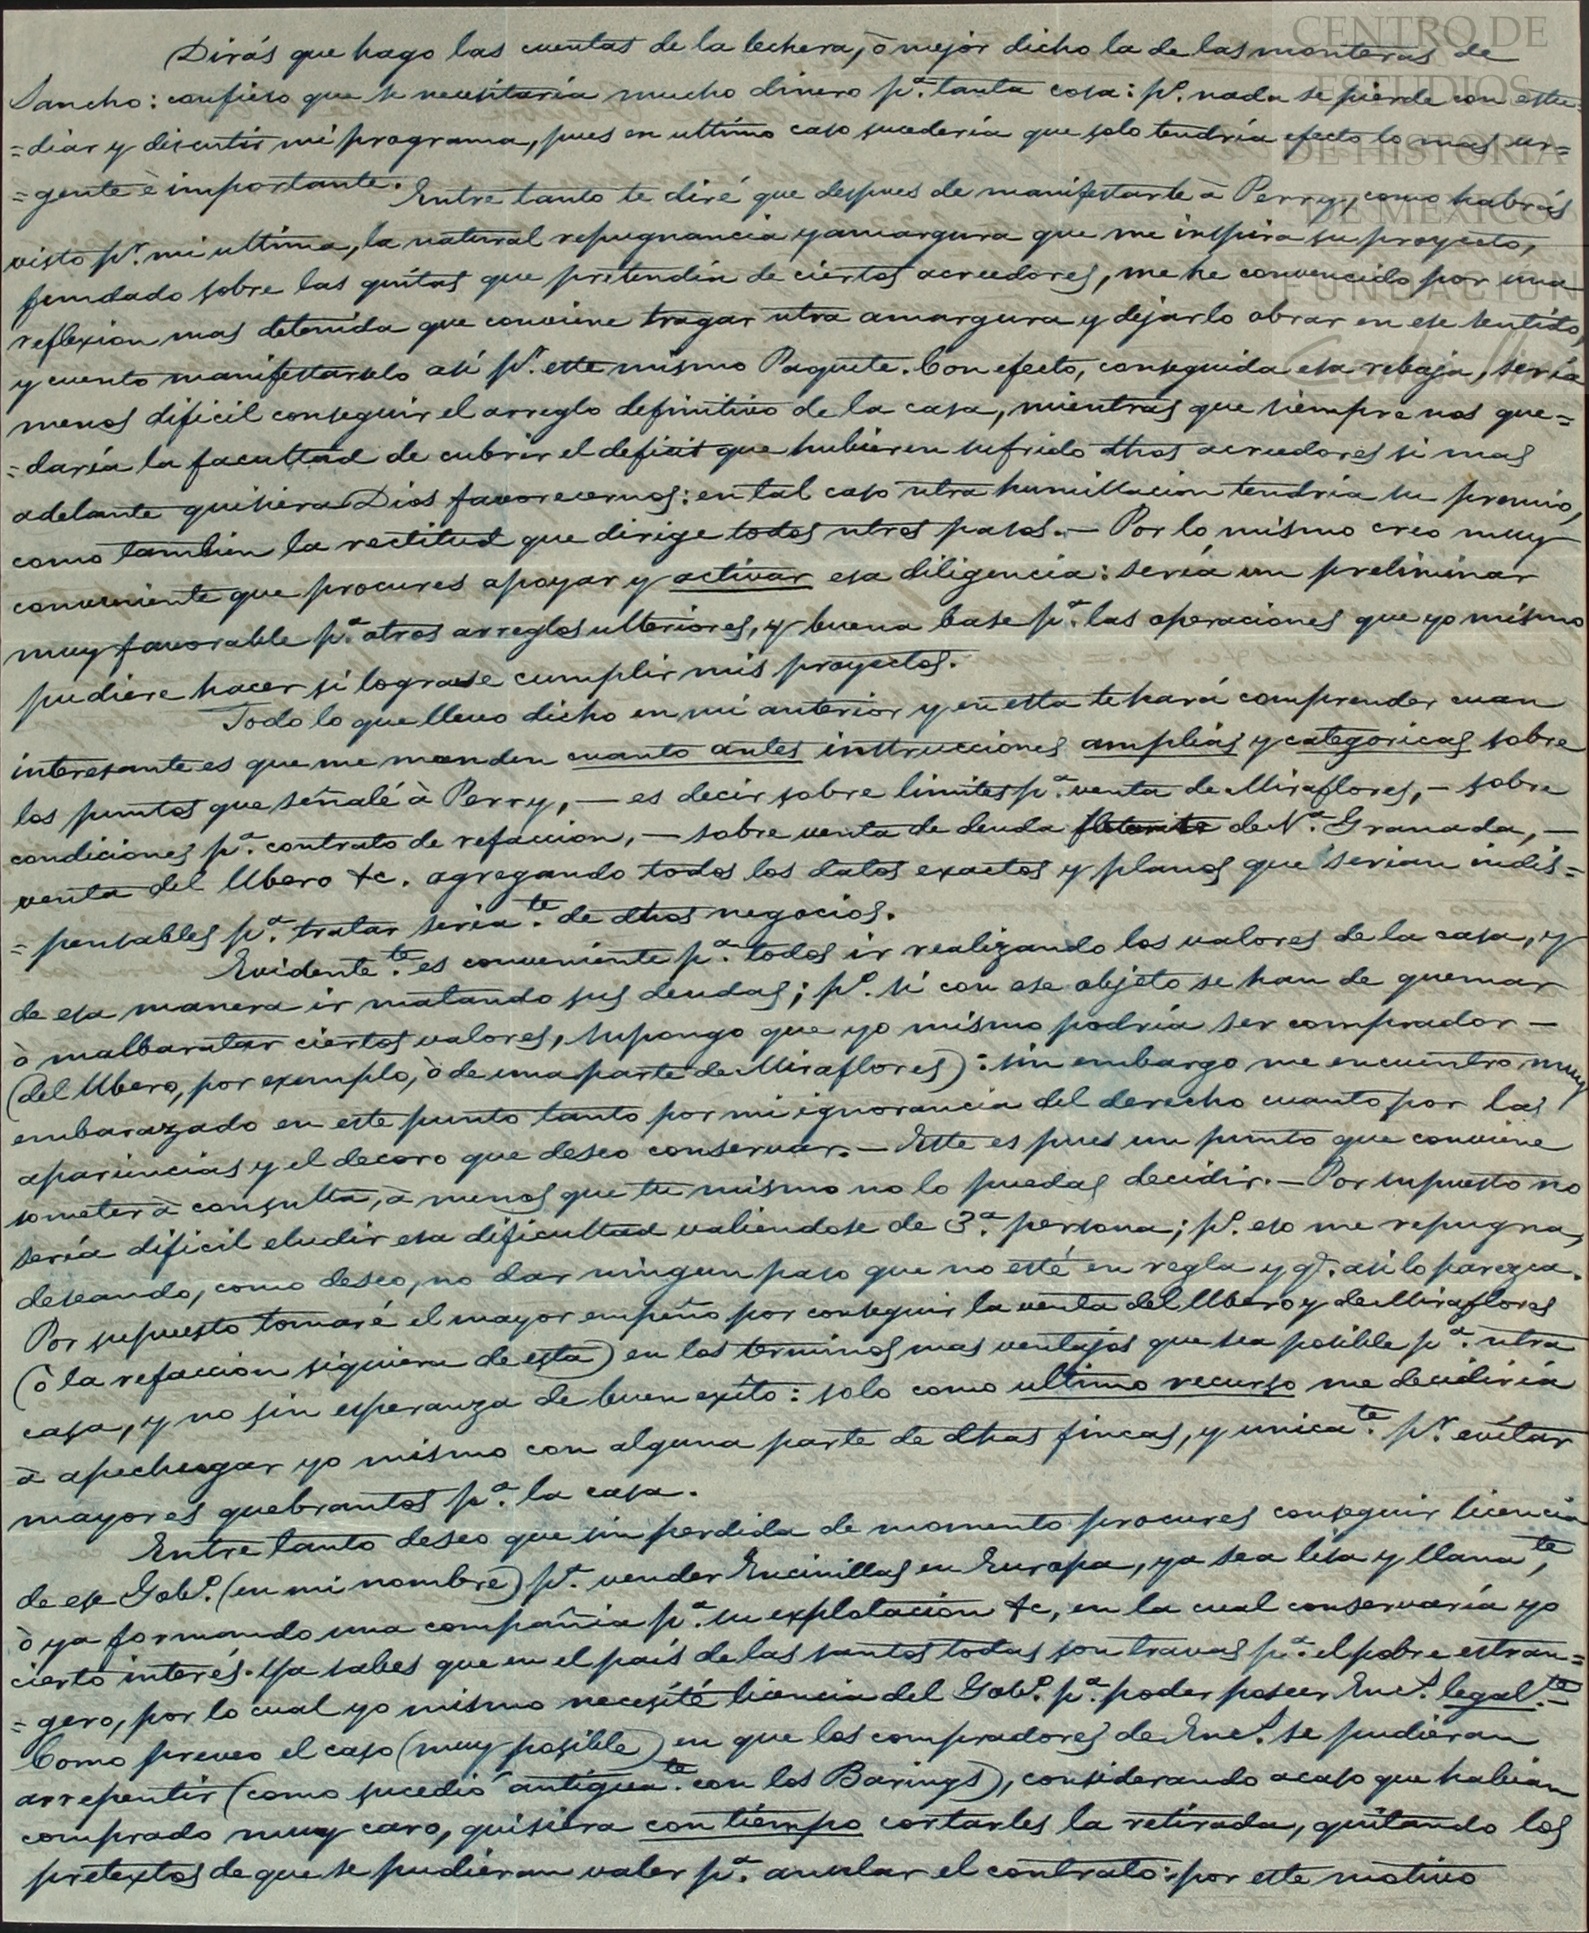 CENTRO DE
ESTUDIOS
DE HISTORIA
DE MEXICO
FUNDACIÓN
Dirás que hago las cuentas de la lechera, ò mejor dicho la de las monteras de
Sancho: confieso que se necesitaria mucho dinero pª. tanta cosa: pº. nada se pierde con estu=
=diar y discutir mi programa, pues en ultimo caso sucederia que solo tendría efecto lo mas ur=
=gente è importante. Entre tanto te diré que despues de manifestarte à Perry, como habrás
visto pr. mi ultima, la natural repugnancia y amargura que me inspira su proyecto,
fundado sobre las quitas que pretendia de ciertos acreedores, me he convencido por una
reflexion mas detenida que conviene tragar ntra amargura y dejarlo obrar en ese sentido,
y cuento manifestarselo asi pr. este mismo Paquete. Con efecto, conseguida esa rebaja, sería
menos dificil conseguir el arreglo definitivo de la casa, mientras que siempre nos que=
=daría la facultad de cubrir el deficit que hubieren sufrido dhos acreedores si mas
adelante quisiera Dios favorecernos: en tal caso ntra humillacion tendría su premio,
como tambien la rectitud que dirige todos ntros pasos.— Por lo mismo creo muy
conveniente que procures apoyar y activar esa diligencia: sería un preliminar
muy favorable pª. otros arreglos ulteriores, y buena base pª. las operaciones que yo mismo
pudiere hacer si lograse cumplir mis proyectos.
Todo lo que llevo dicho en mi anterior y en esta te hará comprender cuan
interesante es que me manden cuanto antes instrucciones amplias y categoricas sobre
los puntos que señalé à Perry,— es decir sobre limites pª. venta de Miraflores,— sobre
condiciones pª. contrato de refaccion,— sobre venta de deuda de Nª. Granada,—
venta del Ubero &c. agregando todos los datos exactos y planos que serian indis=
=pensables pª. tratar seriate. de dhos negocios.
Evidentete. es conveniente pª. todos ir realizando los valores de la casa, y
de esa manera ir matando sus deudas; pº. si con ese objeto se han de quemar
ò malbaratar ciertos valores, supongo que yo mismo podría ser comprador —
(del Ubero, por exemplo, ò de una parte de Miraflores): sin embargo me encuentro muy
embarazado en este punto tanto por mi ignorancia del derecho cuanto por las
apariencias y el decoro que deseo conservar.— Este es pues un punto que conviene
someter à consulta, à menos que tu mismo no lo puedas decidir.— Por supuesto no
sería dificil eludir esa dificultad valiendose de 3ª. persona; pº. eso me repugna,
deseando, como deseo, no dar ningun paso que no esté en regla y q̃. asi lo parezca.
Por supuesto tomaré el mayor empeño por conseguir la venta del Ubero y de Miraflores
(ò la refaccion siquiera de esta) en los terminos mas ventajos que sea posible pª. ntra
casa, y no sin esperanza de buen exito: solo como ultimo recurso me decidiria
à apechugar yo mismo con alguna parte de dhas fincas, y unicate. pr. evitar
mayores quebrantos pª. la casa.
Entre tanto deseo que sin perdida de momento procures conseguir licencia
de ese Gobº. (en mi nombre) pª. vender Encinillas en Europa, ya sea lisa y llanate,
ò ya formando una compañia pª. su explotacion &c, en la cual conservaría yo
cierto interés. Ya sabes que en el país de las santos todas son travas pª. el pobre estran=
=gero, por lo cual yo mismo necesité licencia del Gobº. pª. poder poseer Encs. legalte.
Como preveo el caso (muy posible) en que los compradores de Encs. se pudieran
arrepentir (como sucedió antiguate. con los Barings), considerando acaso que habian
comprado muy caro, quisiera con tiempo cortarles la retirada, quitando los
pretextos de que se pudieran valer pª. anular el contrato: por este motivo